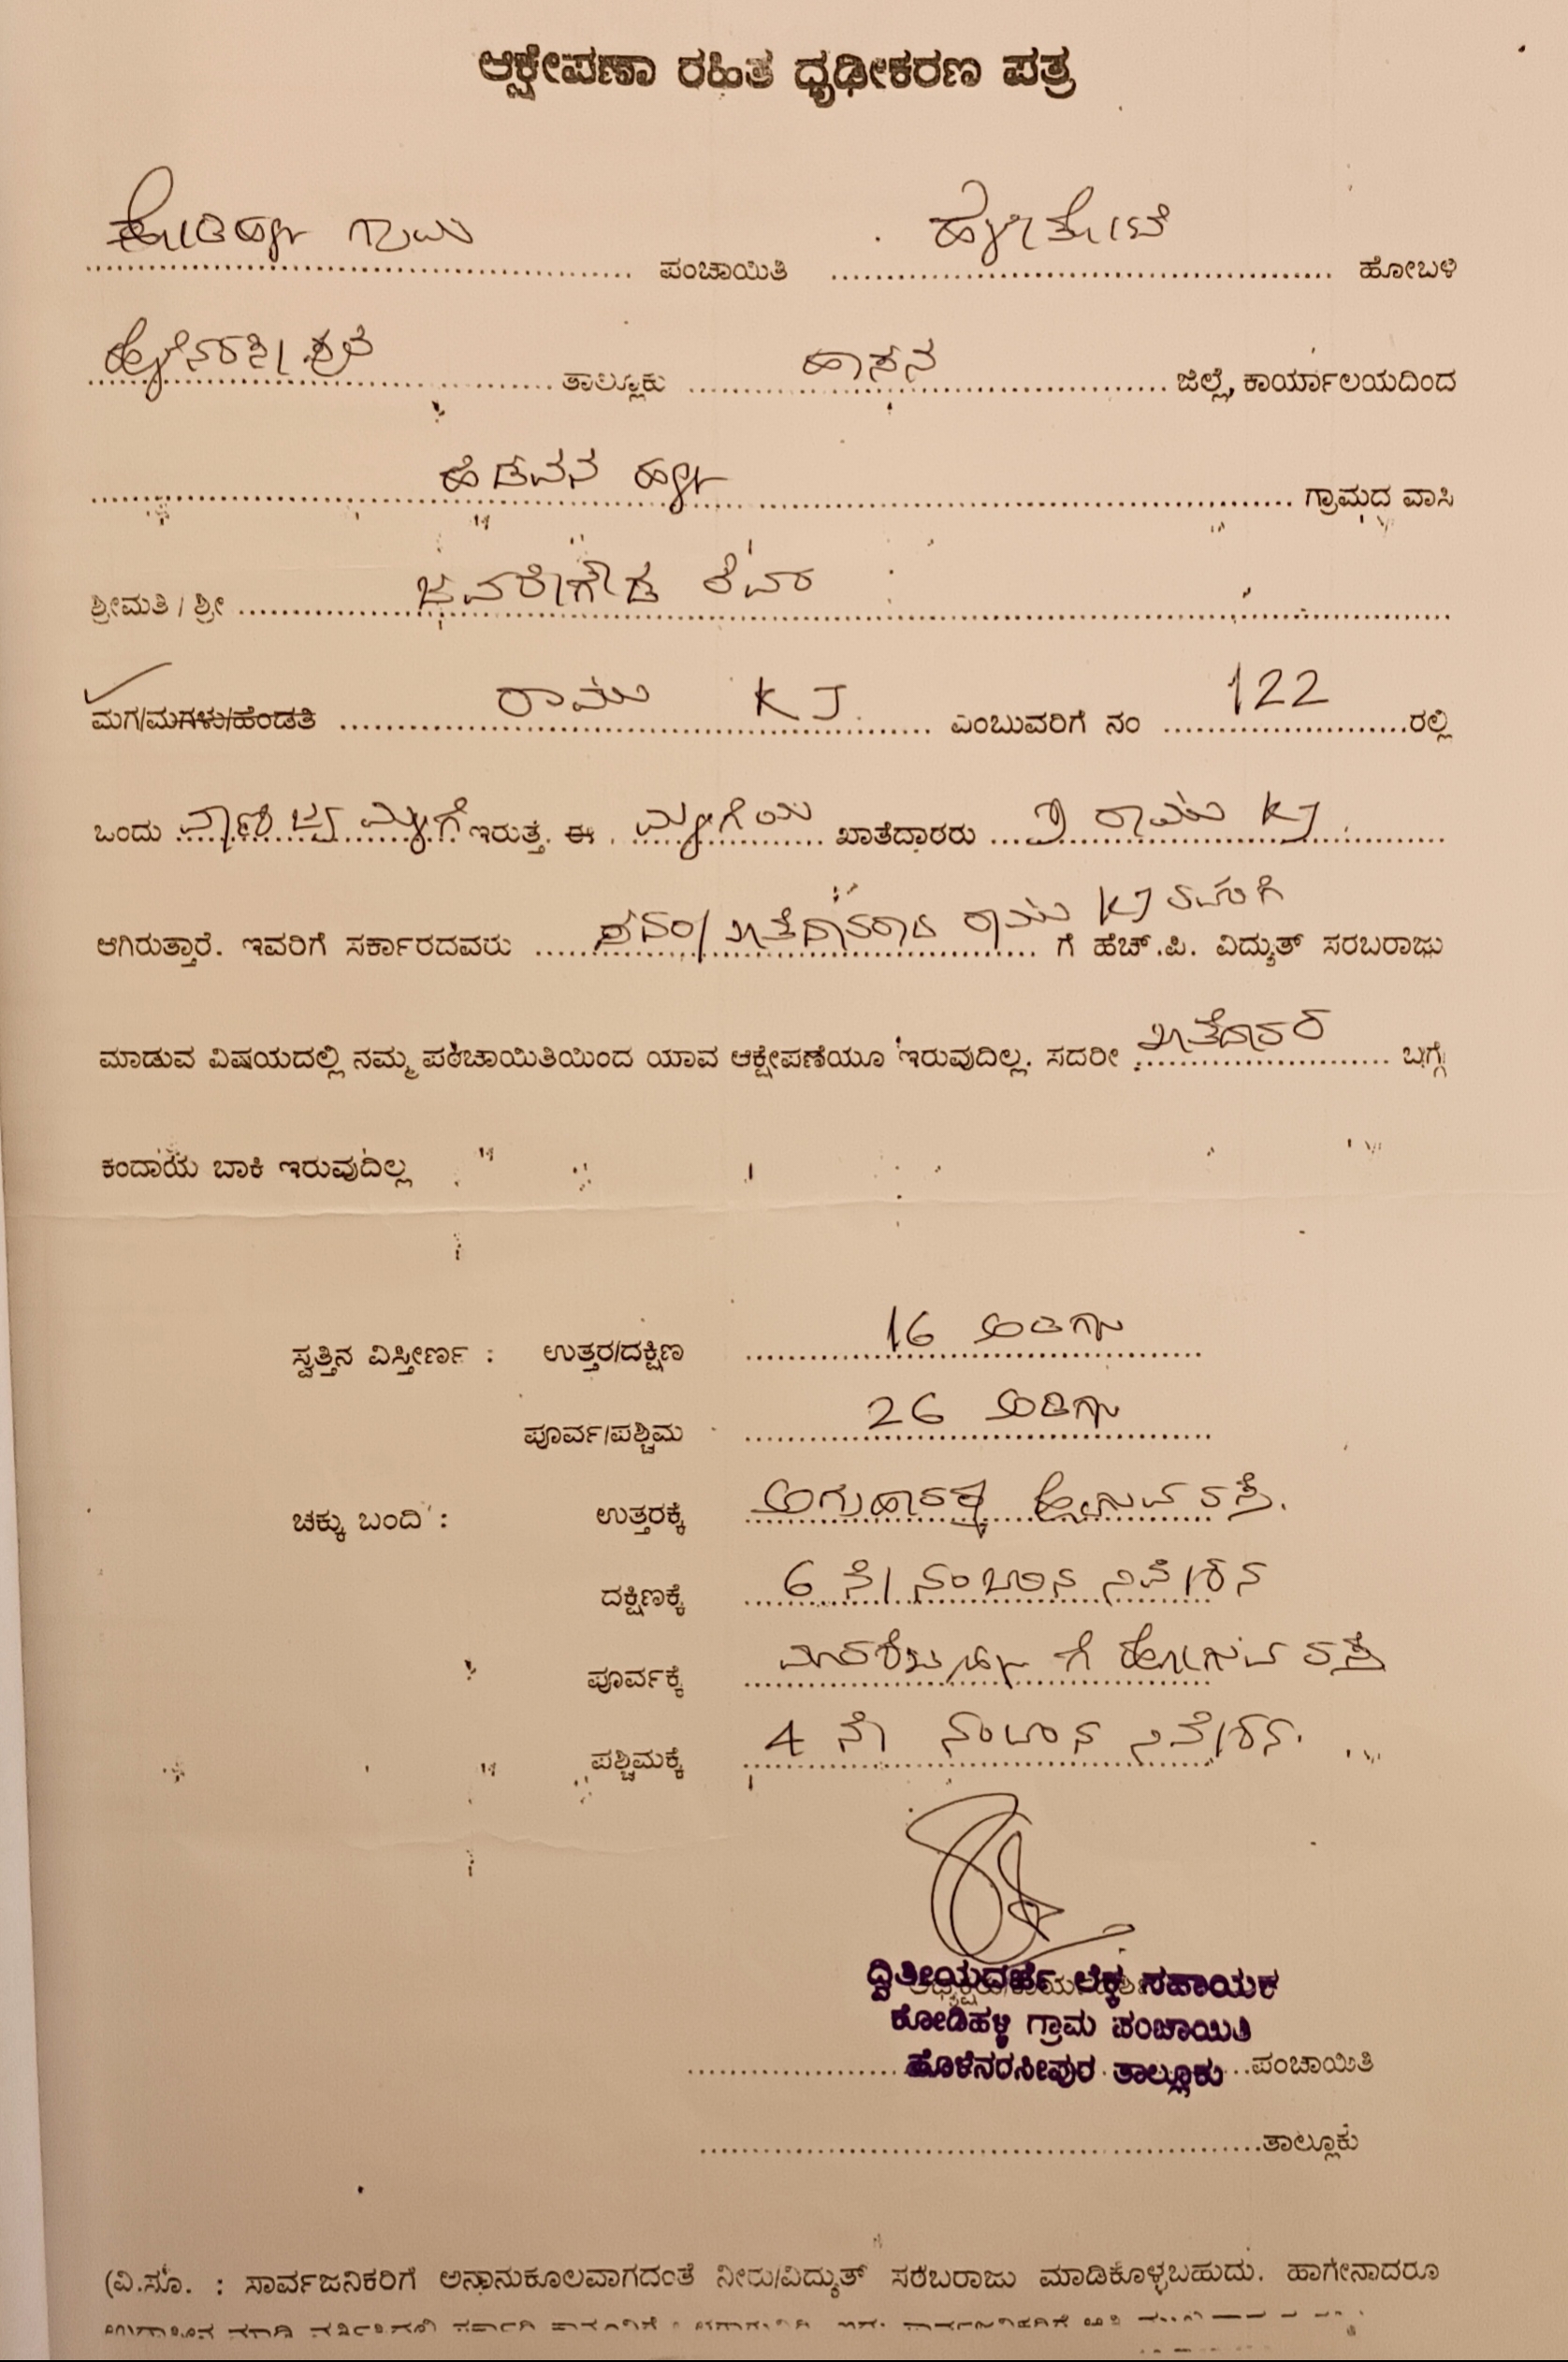 ಆಕ್ಷೇಪಣಾ ರಹಿತ ಧೃಢೀಕರಣ ಪತ್ರ
ಕೋಡಿಹಳ್ಳಿ ಗ್ರಾಮ ಪಂಚಾಯಿತಿ ಹಳ್ಳಿಮೈಸೂರು ಹೋಬಳಿ
ಹೊಳೆನರಸೀಪುರ ತಾಲ್ಲೂಕು ಹಾಸನ ಜಿಲ್ಲೆ, ಕಾರ್ಯಾಲಯದಿಂದ
ಗ್ರಾಮದ ವಾಸಿ
ಶ್ರೀಮತಿ / ಶ್ರೀ ಜವರೇಗೌಡ ರವರ
ಮಗ/ಮಗಳು/ಹೆಂಡತಿ ರಾಮು K J ಎಂಬುವರಿಗೆ ನಂ 122 ರಲ್ಲಿ
ಒಂದು ವಾಣಿಜ್ಯ ಮಳಿಗೆ ಇರುತ್ತೆ. ಈ ಮಳಿಗೆಯ ಖಾತೆದಾರರು ಶ್ರೀ ರಾಮು KJ
ಆಗಿರುತ್ತಾರೆ. ಇವರಿಗೆ ಸರ್ಕಾರದವರು ಸದರಿ ಖಾತೆದಾರರಾದ ರಾಮು KJ ರವರಿಗೆ ಗೆ ಹೆಚ್.ಪಿ. ವಿದ್ಯುತ್ ಸರಬರಾಜು
ಮಾಡುವ ವಿಷಯದಲ್ಲಿ ನಮ್ಮ ಪಂಚಾಯಿತಿಯಿಂದ ಯಾವ ಆಕ್ಷೇಪಣೆಯೂ ಇರುವುದಿಲ್ಲ. ಸದರೀ ಖಾತೆದಾರರ ಬಗ್ಗೆ
ಕಂದಾಯ ಬಾಕಿ ಇರುವುದಿಲ್ಲ
ಸ್ವತ್ತಿನ ವಿಸ್ತೀರ್ಣ : ಉತ್ತರ/ದಕ್ಷಿಣ 16 ಅಡಿಗಳು
ಪೂರ್ವ/ಪಶ್ಚಿಮ 26 ಅಡಿಗಳು
ಚಕ್ಕು ಬಂದಿ : ಉತ್ತರಕ್ಕೆ ಅಗ್ರಹಾರಕ್ಕೆ ಹೋಗುವ ರಸ್ತೆ.
ದಕ್ಷಿಣಕ್ಕೆ 6 ನೇ ನಂಬರಿನ ನಿವೇಶನ
ಪೂರ್ವಕ್ಕೆ ಗೆ ಹೋಗುವ ರಸ್ತೆ
ಪಶ್ಚಿಮಕ್ಕೆ 4 ನೇ ನಂಬರಿನ ನಿವೇಶನ.
ದ್ವಿತೀಯದರ್ಜೆ ಲೆಕ್ಕ ಸಹಾಯಕ
ಕೋಡಿಹಳ್ಳಿ ಗ್ರಾಮ ಪಂಚಾಯಿತಿ
ಹೊಳೆನರಸೀಪುರ ತಾಲ್ಲೂಕು ಪಂಚಾಯಿತಿ
ತಾಲ್ಲೂಕು
(ವಿ.ಸೂ. : ಸಾರ್ವಜನಿಕರಿಗೆ ಅನಾನುಕೂಲವಾಗದಂತೆ ನೀರು/ವಿದ್ಯುತ್ ಸರಬರಾಜು ಮಾಡಿಕೊಳ್ಳಬಹುದು. ಹಾಗೇನಾದರೂ